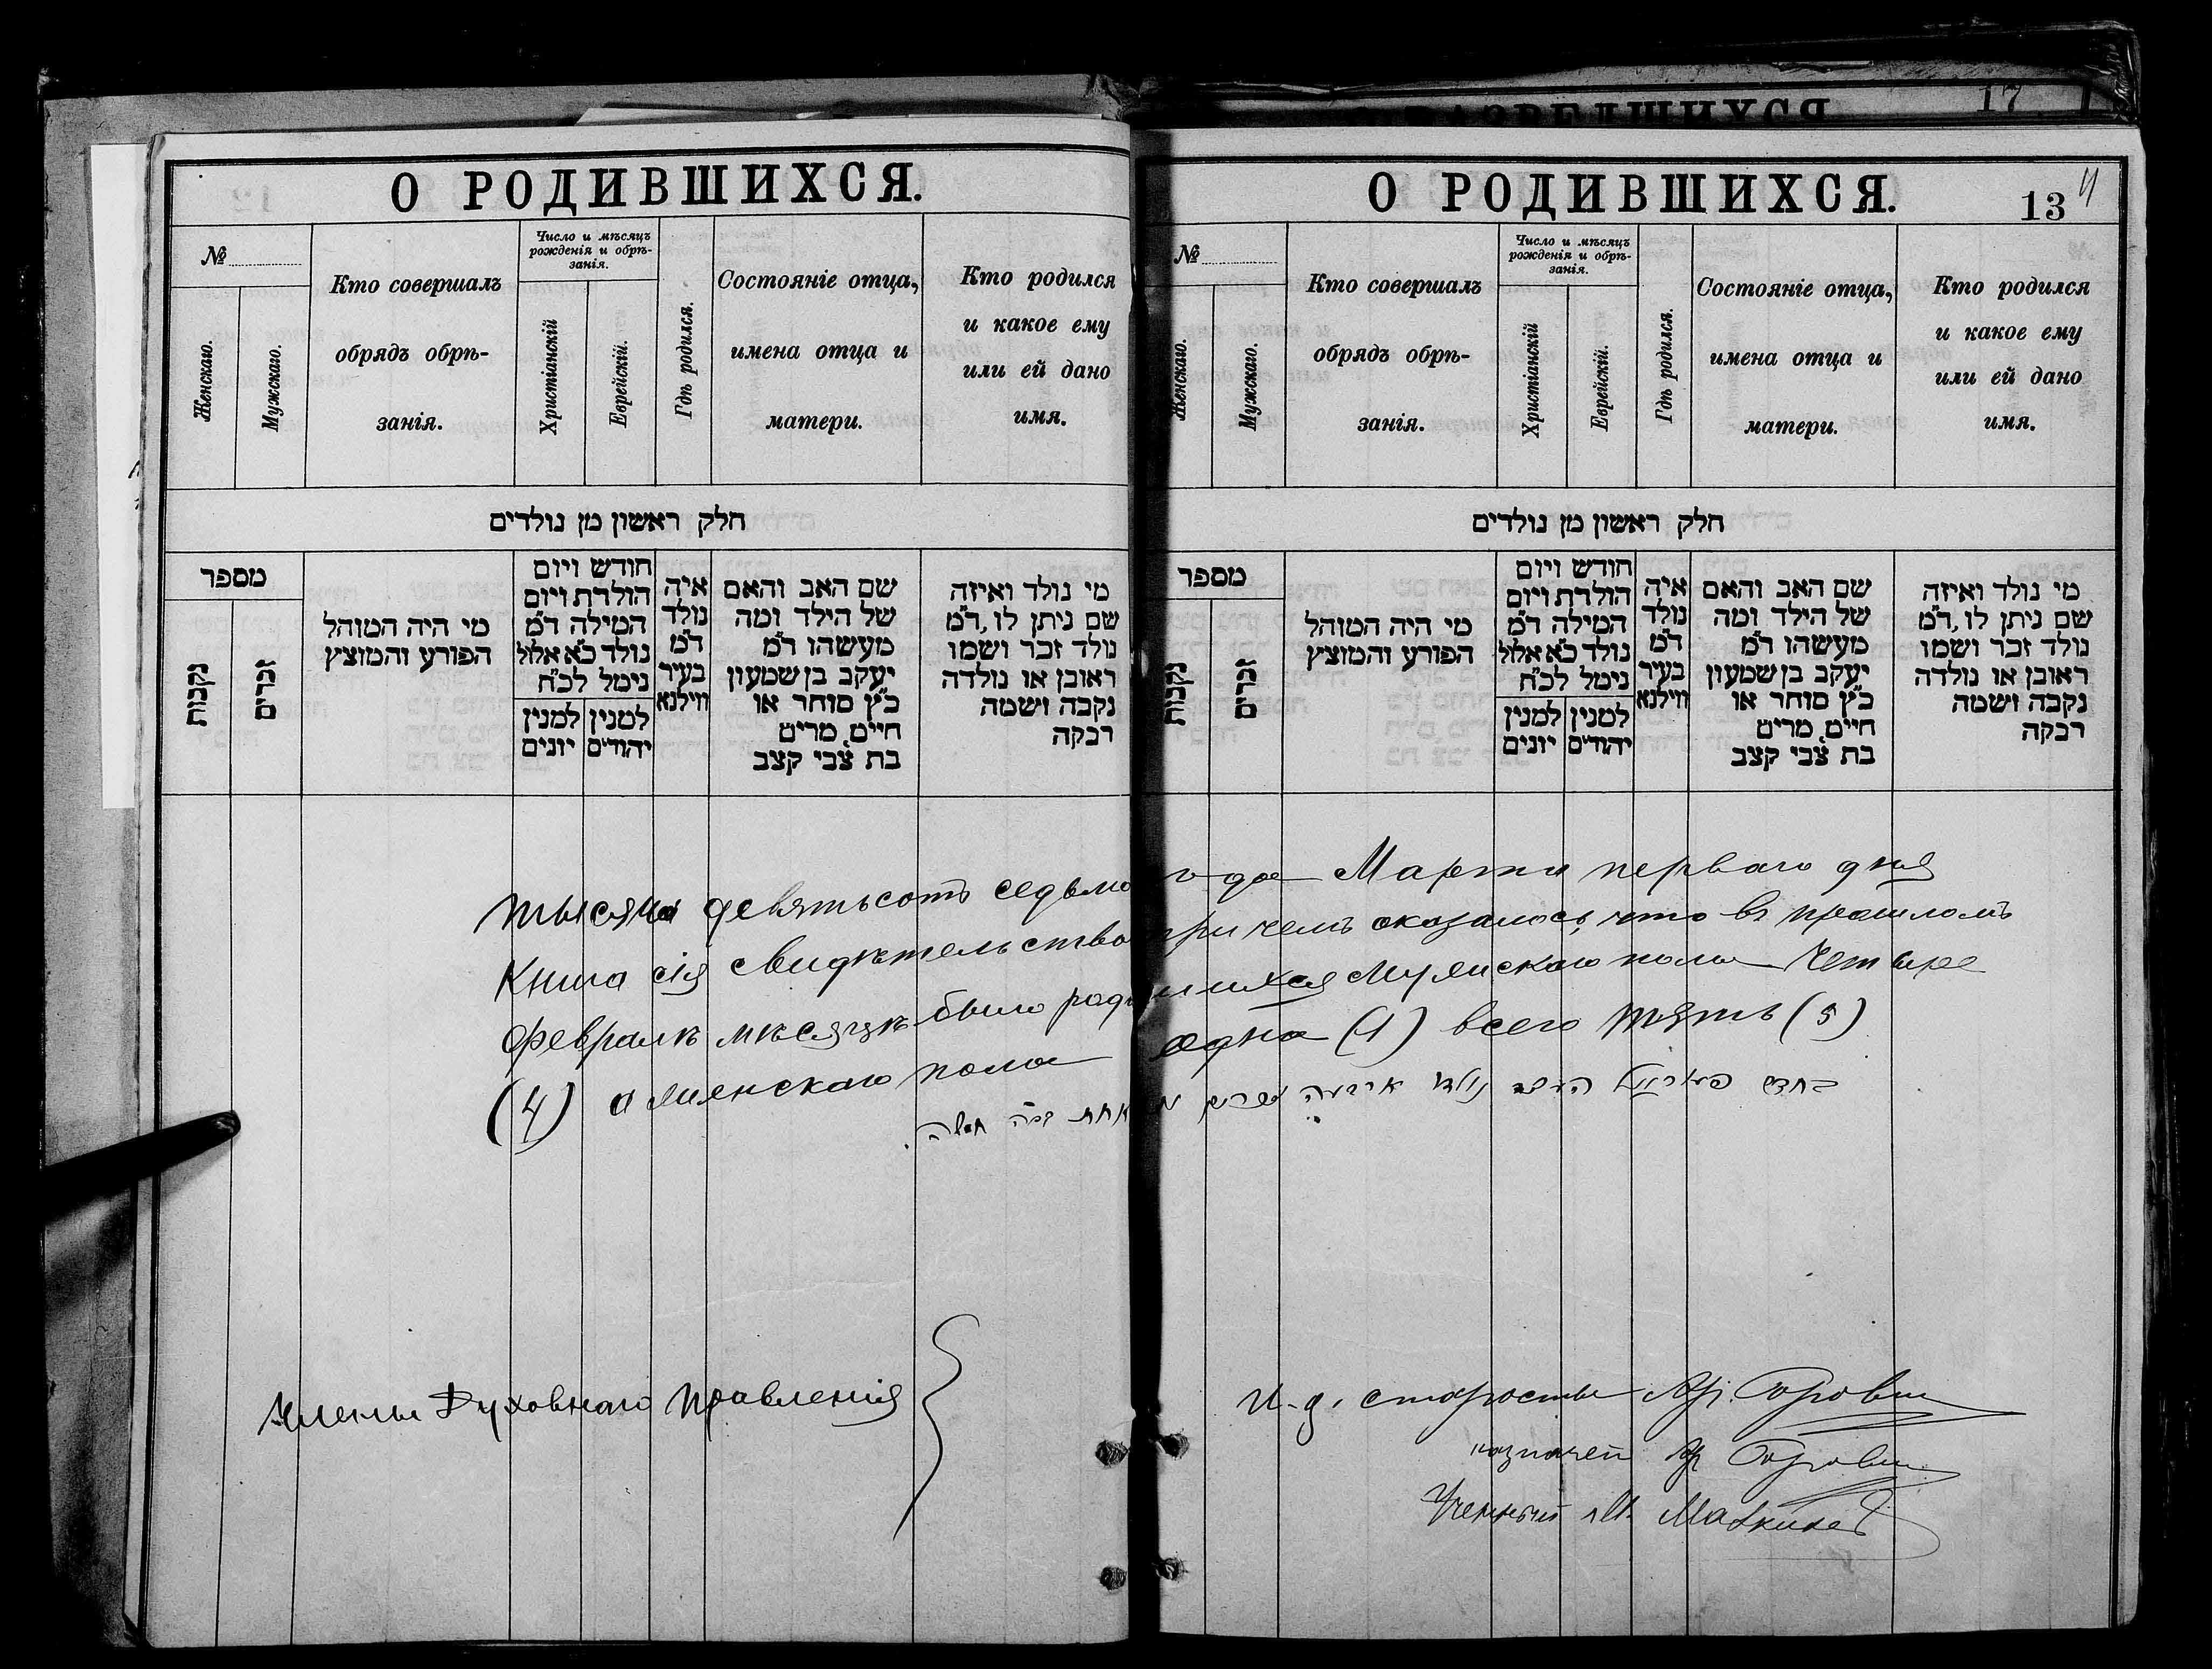 17
О РОДИВШИХСЯ.
№
Женскаго.
Мужскаго.
Кто совершалъ
обрядъ обрѣ-
занія.
Число и мѣсяцъ
рожденія и обрѣ-
занія.
Христіанскій
Еврейскій.
Гдѣ родился.
Состояніе отца,
имена отца и
матери.
Кто родился
и какое ему
или ей дано
имя.
חלק ראשון מן נולדים
מספר
נקבות
זכרים
מי היה המוהל
הפורע והמוצץ
חודש ויום
הולדת ויום
המילה ד"מ
נולד כ"א אלול
נימל לכ"ח
למנין יהודים
למנין יונים
איה
נולד
ד"מ
בעיר
ווילנא
שם האב והאם
של הילד ומה
מעשהו ד"מ
יעקב בן שמעון
כ"ץ סוחר או
חיים, מרים
בת צבי קצב
מי נולד ואיזה
שם ניתן לו, ד"מ
נולד זכר ושמו
ראובן או נולדה
נקבה ושמה
רבקה
О РОДИВШИХСЯ.
13
№
Женскаго.
Мужскаго.
Кто совершалъ
обрядъ обрѣ-
занія.
Число и мѣсяцъ
рожденія и обрѣ-
занія.
Христіанскій
Еврейскій.
Гдѣ родился.
Состояніе отца,
имена отца и
матери.
Кто родился
и какое ему
или ей дано
имя.
חלק ראשון מן נולדים
מספר
נקבות
זכרים
מי היה המוהל
הפורע והמוצץ
חודש ויום
הולדת ויום
המילה ד"מ
נולד כ"א אלול
נימל לכ"ח
למנין יהודים
למנין יונים
איה
נולד
ד"מ
בעיר
ווילנא
שם האב והאם
של הילד ומה
מעשהו ד"מ
יעקב בן שמעון
כ"ץ סוחר או
חיים, מרים
בת צבי קצב
מי נולד ואיזה
שם ניתן לו, ד"מ
נולד זכר ושמו
ראובן או נולדה
נקבה ושמה
רבקה
тысяча девятьсотъ седьмо года Марта перваго дня
Книга сія свидѣтельство причемъ оказалось, что въ прошломъ
Февралѣ мѣсяцѣ было роди вшихся мужскаго пола четыре
(4) а женскаго пола одна (1) всего пять (5)
Члены Духовнаго Правленія
И. д. старосты
казначей
Ученный